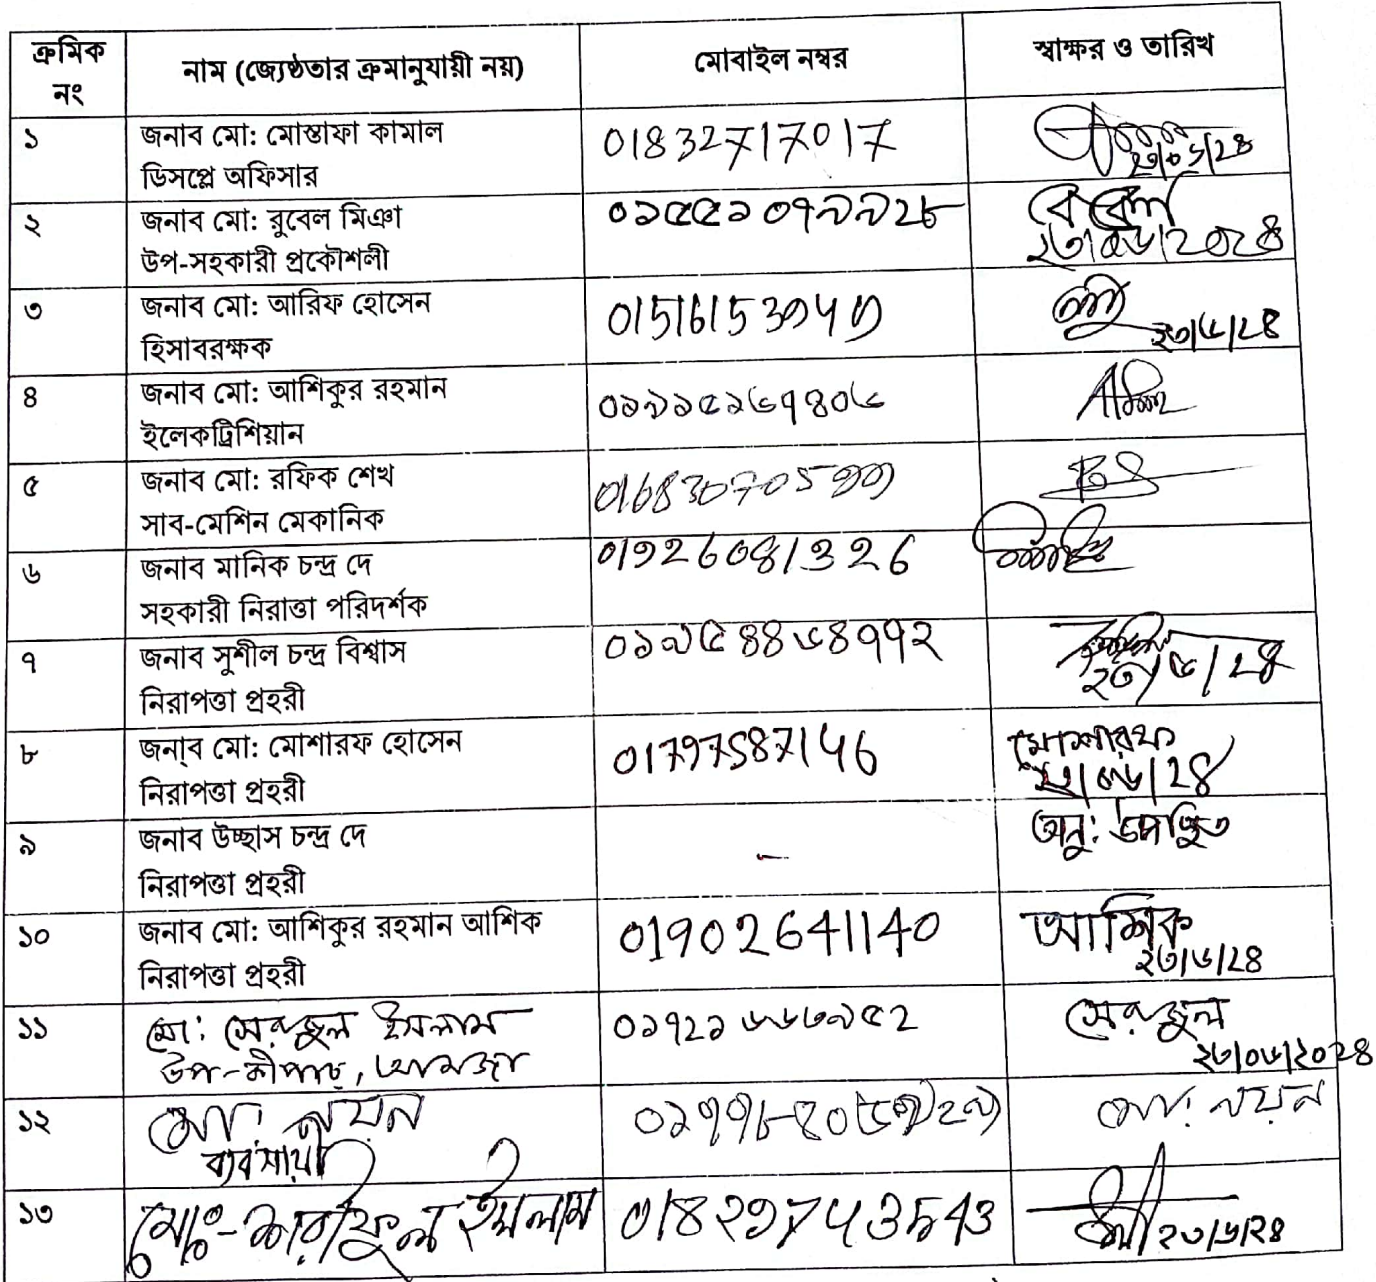 ক্রমিক নং
নাম (জ্যেষ্ঠতার ক্রমানুযায়ী নয়)
মোবাইল নম্বর
স্বাক্ষর ও তারিখ
১
জনাব মো: মোস্তাফা কামাল
ডিসপ্লে অফিসার
01832717017
২
জনাব মো: রুবেল মিঞা
উপ-সহকারী প্রকৌশলী
০১৫৫১০৭৯৯২৮
২৩/০৬/২০২৪
৩
জনাব মো: আরিফ হোসেন
হিসাবরক্ষক
২৩/৬/২৪
৪
জনাব মো: আশিকুর রহমান
ইলেকট্রিশিয়ান
০১৯১৫১৬৭৪০৬
৫
জনাব মো: রফিক শেখ
সাব-মেশিন মেকানিক
৬
জনাব মানিক চন্দ্র দে
সহকারী নিরাত্তা পরিদর্শক
০1926081326
৭
জনাব সুশীল চন্দ্র বিশ্বাস
নিরাপত্তা প্রহরী
০১৯৫৪৪৬৪৭৭২
২৩/৬/২৪
৮
জনাব মো: মোশারফ হোসেন
নিরাপত্তা প্রহরী
01797587146
মোশারফ
২৩/০৬/২৪
৯
জনাব উচ্ছাস চন্দ্র দে
নিরাপত্তা প্রহরী
-
অনু: উপস্থিত
১০
জনাব মো: আশিকুর রহমান আশিক
নিরাপত্তা প্রহরী
01902641140
আশিক
২৩/৬/২৪
১১
মো: সেরাজুল ইসলাম
উপ-কীপার,
০১৭২১৬৬৩৯৫২
সেরাজুল
২৩/০৬/২০২৪
১২
মো: নয়ন
ব্যবসায়ী
মো: নয়ন
১৩
মোঃ-শরীফুল ইসলাম
২৩/৬/২৪